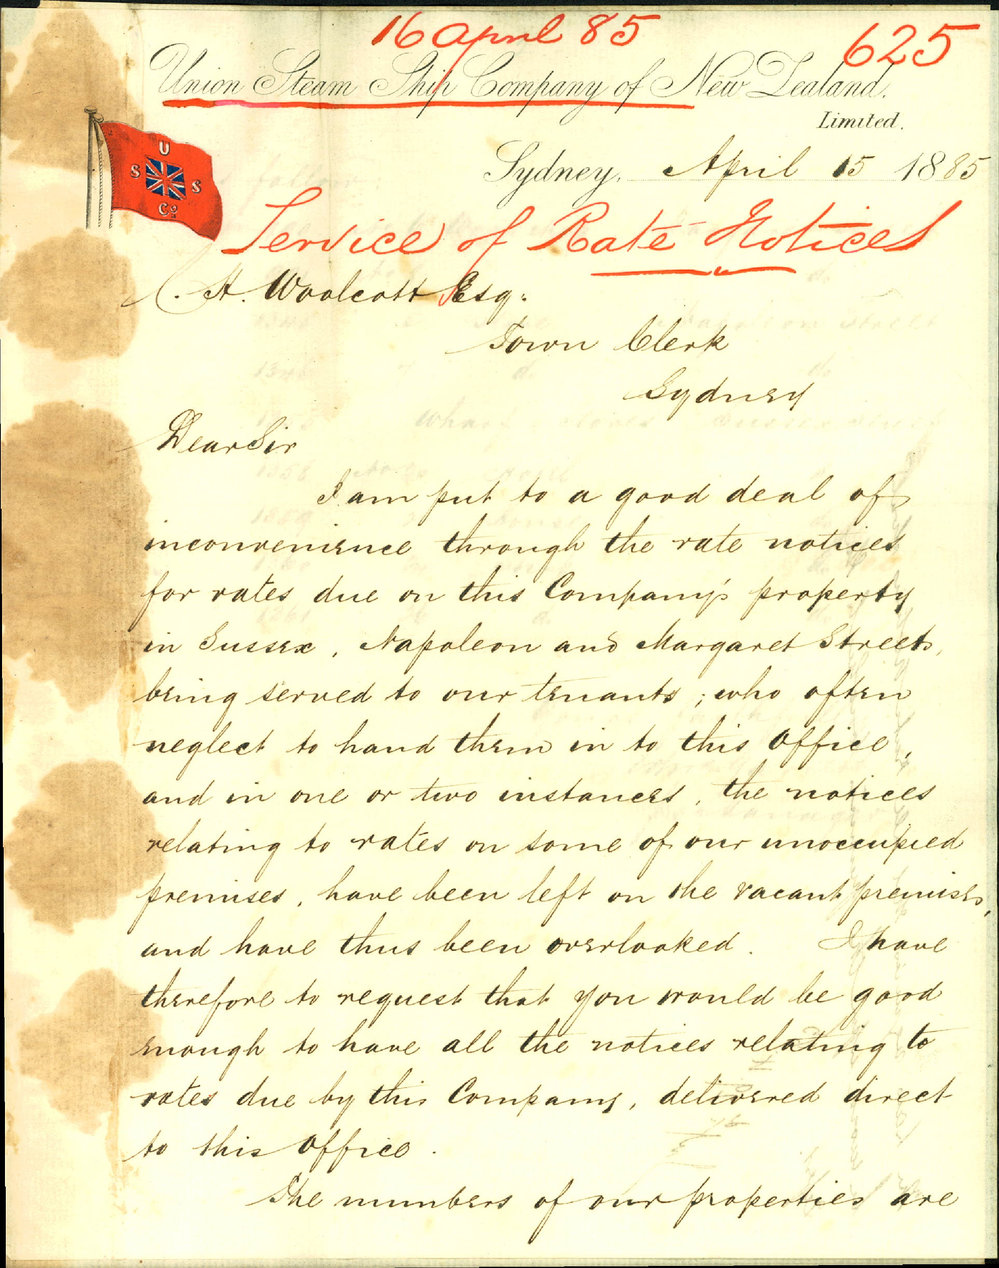 16 April 85
625
Union Steam Ship Company of New Zealand.
Limited.
U
S S
Co.
Sydney, April 15 1885
Service of Rate Notices
C. H. Woolcott Esq.
Town Clerk
Sydney
Dear Sir
I am put to a good deal of
inconvenience through the rate notices
for rates due on this Company's property
in Sussex, Napoleon and Margaret Streets,
being served to our tenants; who often
neglect to hand them in to this office,
and in one or two instances, the notices
relating to rates on some of our unoccupied
premises, have been left on the vacant premises,
and have thus been overlooked. I have
therefore to request that you would be good
enough to have all the notices relating to
rates due by this Company, delivered direct
to this office.
The numbers of our properties are